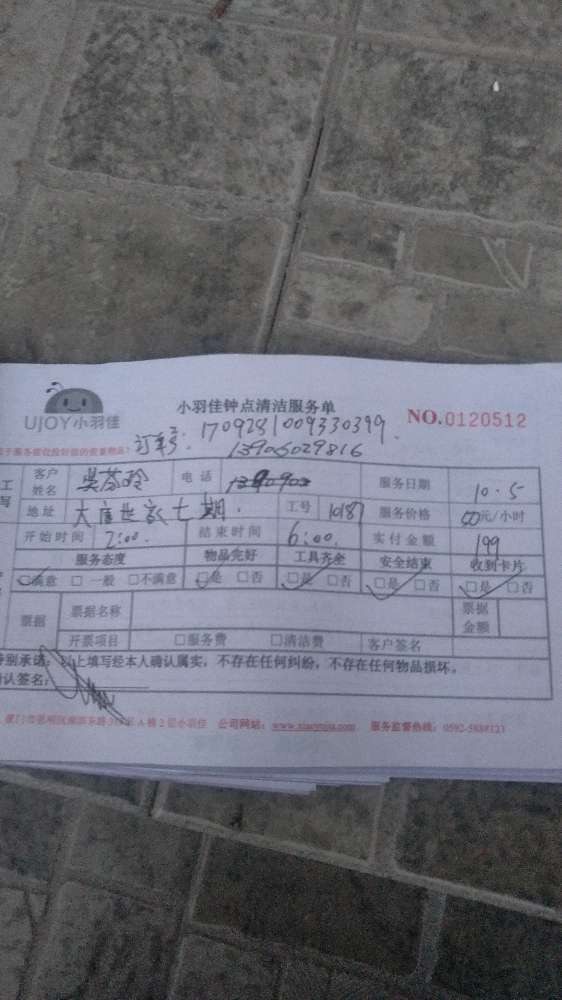 UJOY小羽佳
小羽佳钟点清洁服务单
NO.0120512
订单号: 1709281009330399.
13906029816
客户姓名 电话 服务日期 10.5
地址 大唐世家七期. 工号 10187 服务价格 50元/小时
开始时间 2:00. 结束时间 6:00. 实付金额 199
服务态度 物品完好 工具齐全 安全结束 收到卡片
□满意 □一般 □不满意 □是 □否 □是 □否 □是 □否 □是 □否
票据 票据名称 票据金额
开票项目 □服务费 □清洁费 客户签名
特别承诺：以上填写经本人确认属实，不存在任何纠纷，不存在任何物品损坏。
确认签名：
A栋2层小羽佳 公司网站：www.xiaoyujia.com 服务监督热线：0592-5888123